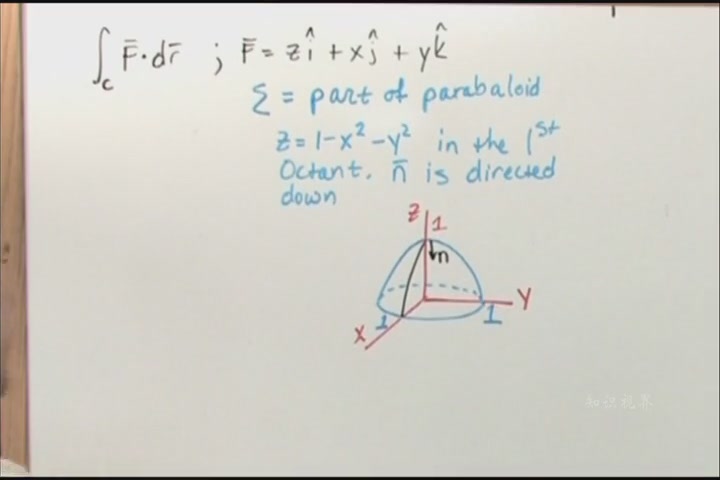 ∫_C F̄·dr̄ ; F̄ = zî + xĵ + yk̂
Σ = part of parabaloid
z = 1-x²-y² in the 1st
Octant. n̄ is directed
down
Z
1
n
Y
1
1
X
知识视界